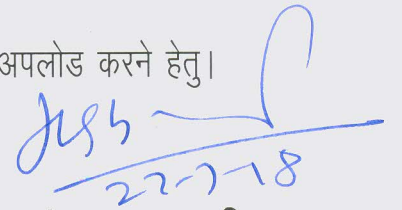 अपलोड करने हेतु।
22-7-18